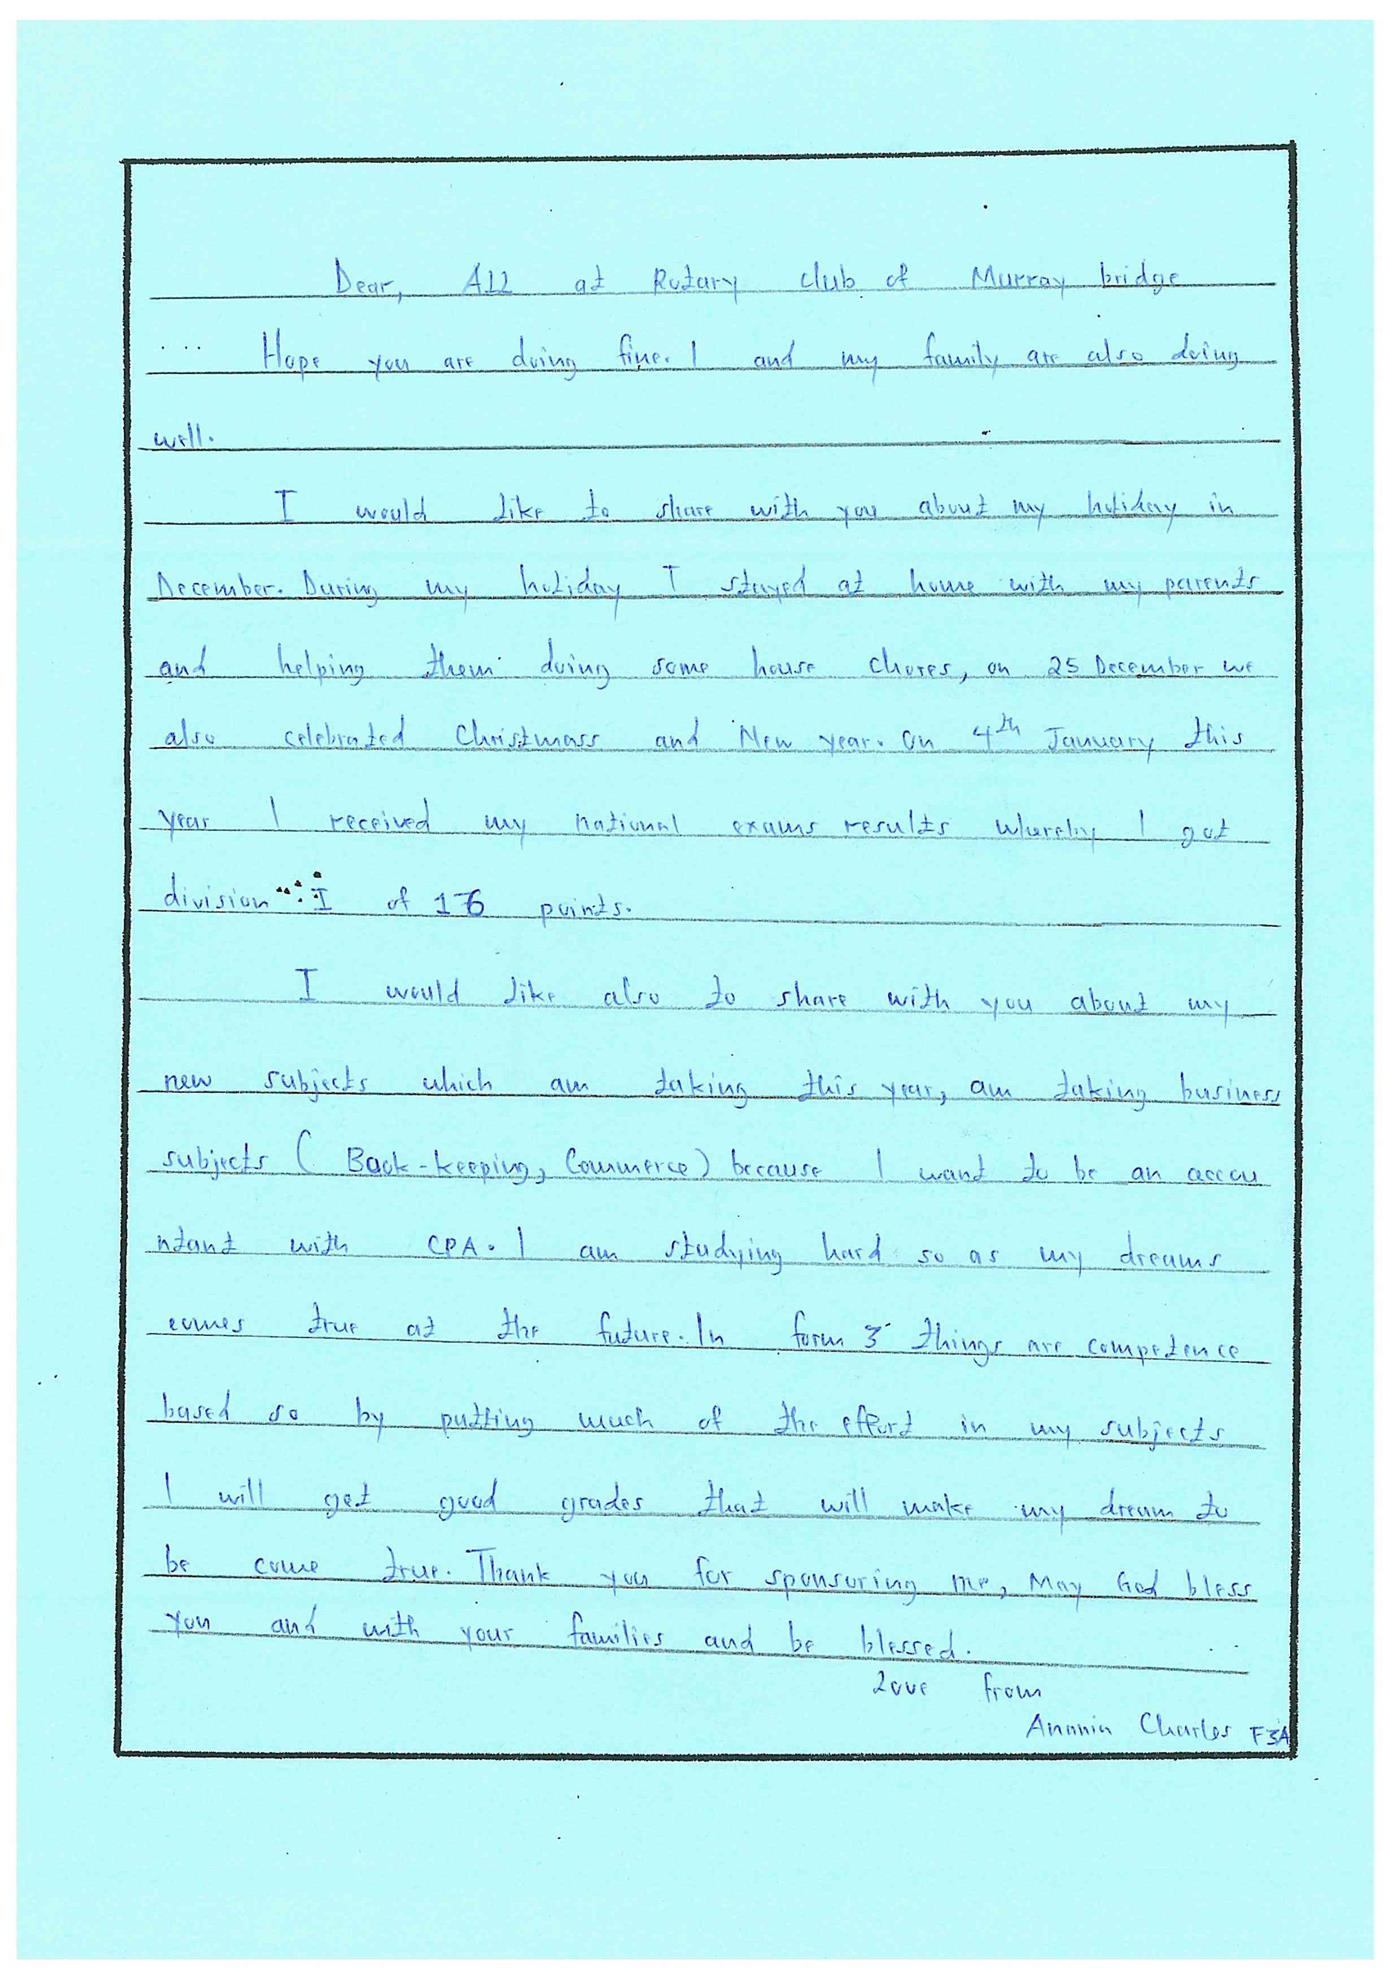 Dear, All at Rotary club of Murray bridge
... Hope you are doing fine. I and my family are also doing
well.
I would like to share with you about my holiday in
December. During my holiday I stayed at home with my parents
and helping them doing some house chores, on 25 December we
also celebrated Christmass and New year. On 4th January this
year I received my national exams results whereby I got
division I of 16 points.
I would like also to share with you about my
new subjects which am taking this year, am taking business
subjects ( Book-keeping, Commerce) because I want to be an accou
ntant with CPA. I am studying hard so as my dreams
comes true at the future. In form 3 things are competence
based so by putting much of the effort in my subjects
I will get good grades that will make my dream to
be come true. Thank you for sponsoring me, May God bless
you and with your families and be blessed.
Love from
Anania Charles F3A